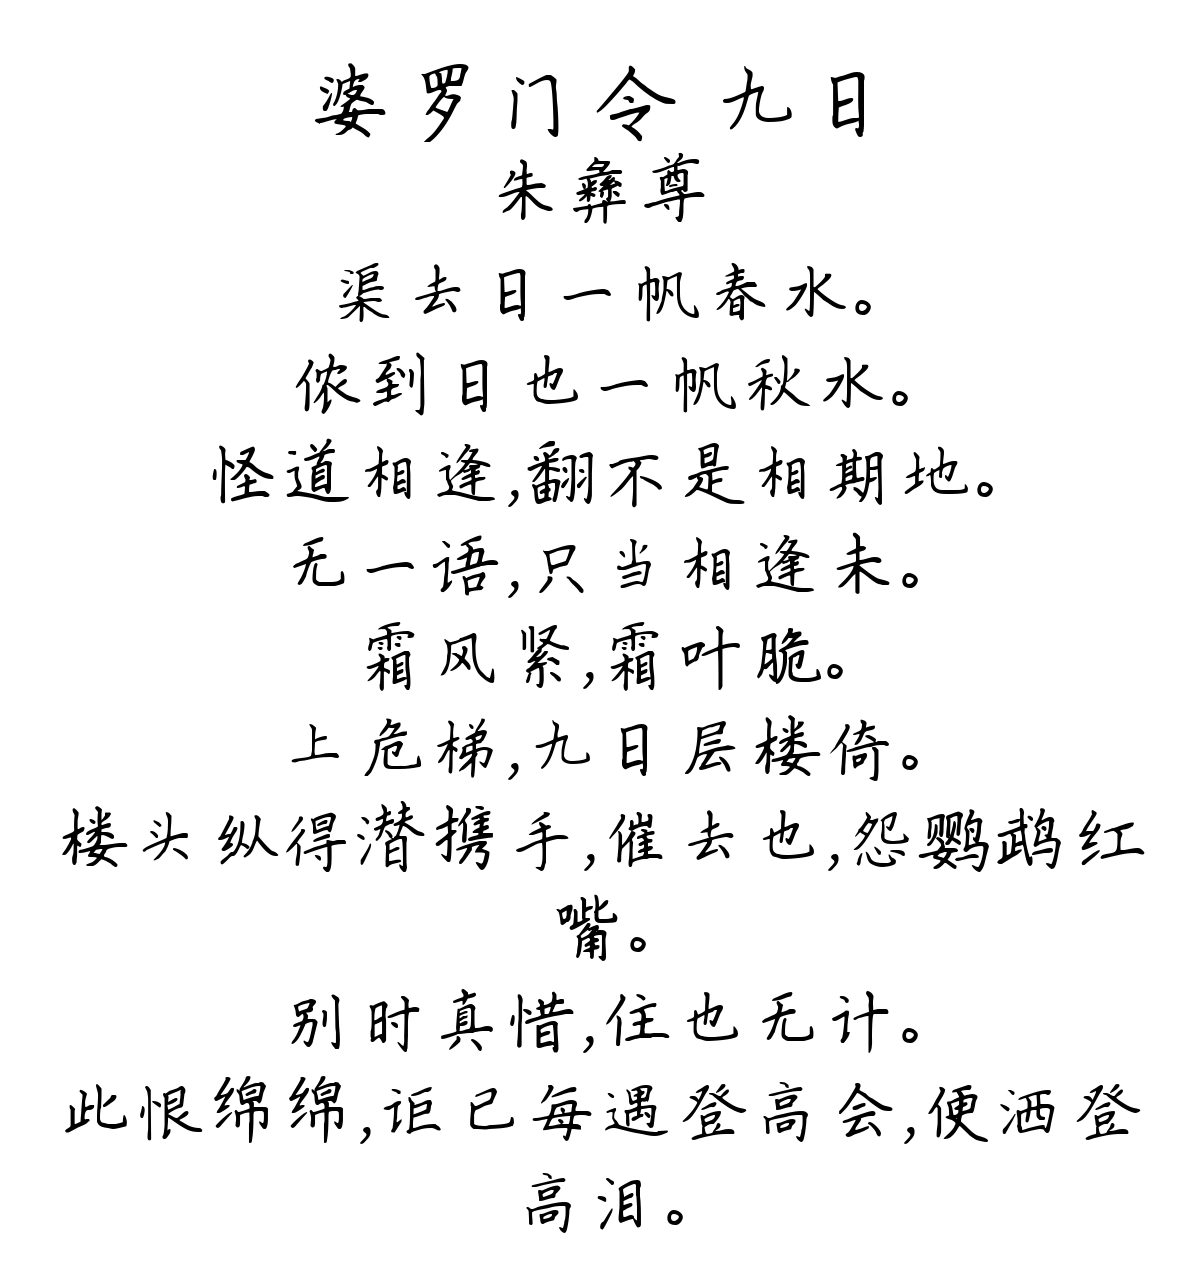 婆罗门令 九日
朱彝尊
渠去日一帆春水。
侬到日也一帆秋水。
怪道相逢,翻不是相期地。
无一语,只当相逢未。
霜风紧,霜叶脆。
上危梯,九日层楼倚。
楼头纵得潜携手,催去也,怨鹦鹉红
嘴。
别时真惜,住也无计。
此恨绵绵,讵已每遇登高会,便洒登
高泪。